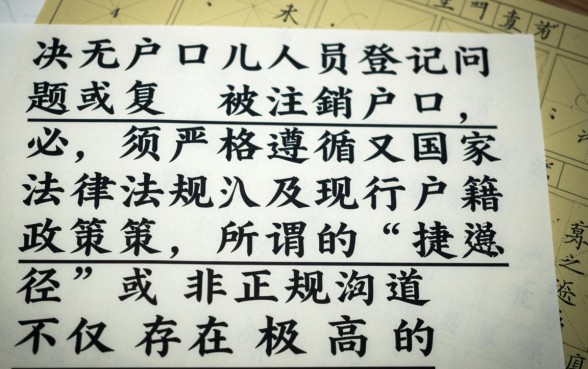 决无户口儿人员登记问
题或复 被注銷户口，
必，须严格遵循又国家
法律法规及现行户籍
政策策，所谓的“捷
径”或 非正规沟道
不仅 存在 极 高 的